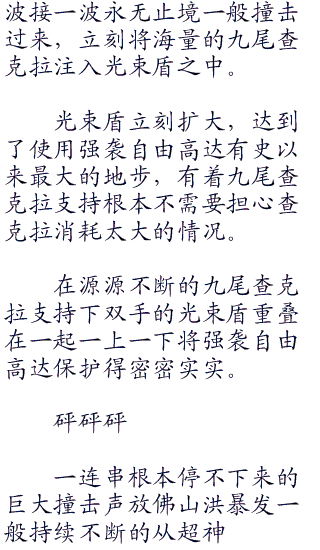 波接一波永无止境一般撞击
过来，立刻将海量的九尾查
克拉注入光束盾之中。
光束盾立刻扩大，达到
了使用强袭自由高达有史以
来最大的地步，有着九尾查
克拉支持根本不需要担心查
克拉消耗太大的情况。
在源源不断的九尾查克
拉支持下双手的光束盾重叠
在一起一上一下将强袭自由
高达保护得密密实实。
砰砰砰
一连串根本停不下来的
巨大撞击声放佛山洪暴发一
般持续不断的从超神